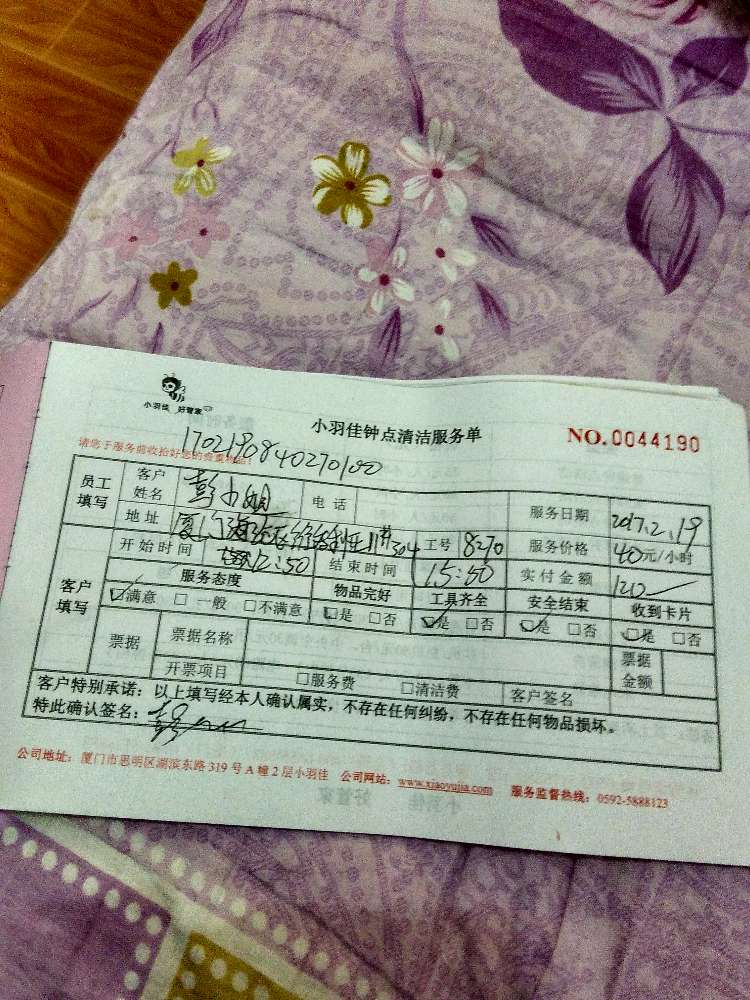 小羽佳 好管家
小羽佳钟点清洁服务单
NO.0044190
请您于服务前收拾好您的贵重物品!
1702190840270100
员工填写 客户姓名 彭小姐 电话 服务日期 2017.2.19
地址 厦门 304 工号 8270 服务价格 40元/小时
开始时间 12:50 结束时间 15:50 实付金额 120
客户填写 服务态度 物品完好 工具齐全 安全结束 收到卡片
☑满意 □一般 □不满意 ☑是 □否 ☑是 □否 ☑是 □否 ☑是 □否
票据 票据名称 票据金额
开票项目 □服务费 □清洁费 客户签名
客户特别承诺：以上填写经本人确认属实，不存在任何纠纷，不存在任何物品损坏。
特此确认签名：
公司地址：厦门市思明区湖滨东路319号A幢2层小羽佳 公司网站：www.xiaoyujia.com 服务监督热线：0592-5888123